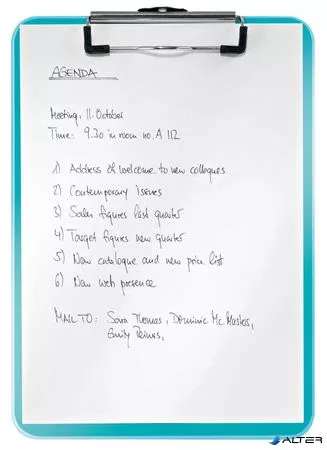 AGENDA
Meeting: 11. October
Time: 9.30 in room no. A 112
1) Address of welcome to new collegues
2) Contemporary issues
3) Sales figures last quarter
4) Target figures new quarter
5) New catalogue and new price list
6) New web presence
MAIL TO: Sara Thomas, Dominic Mc Masters,
Emily
ALTER